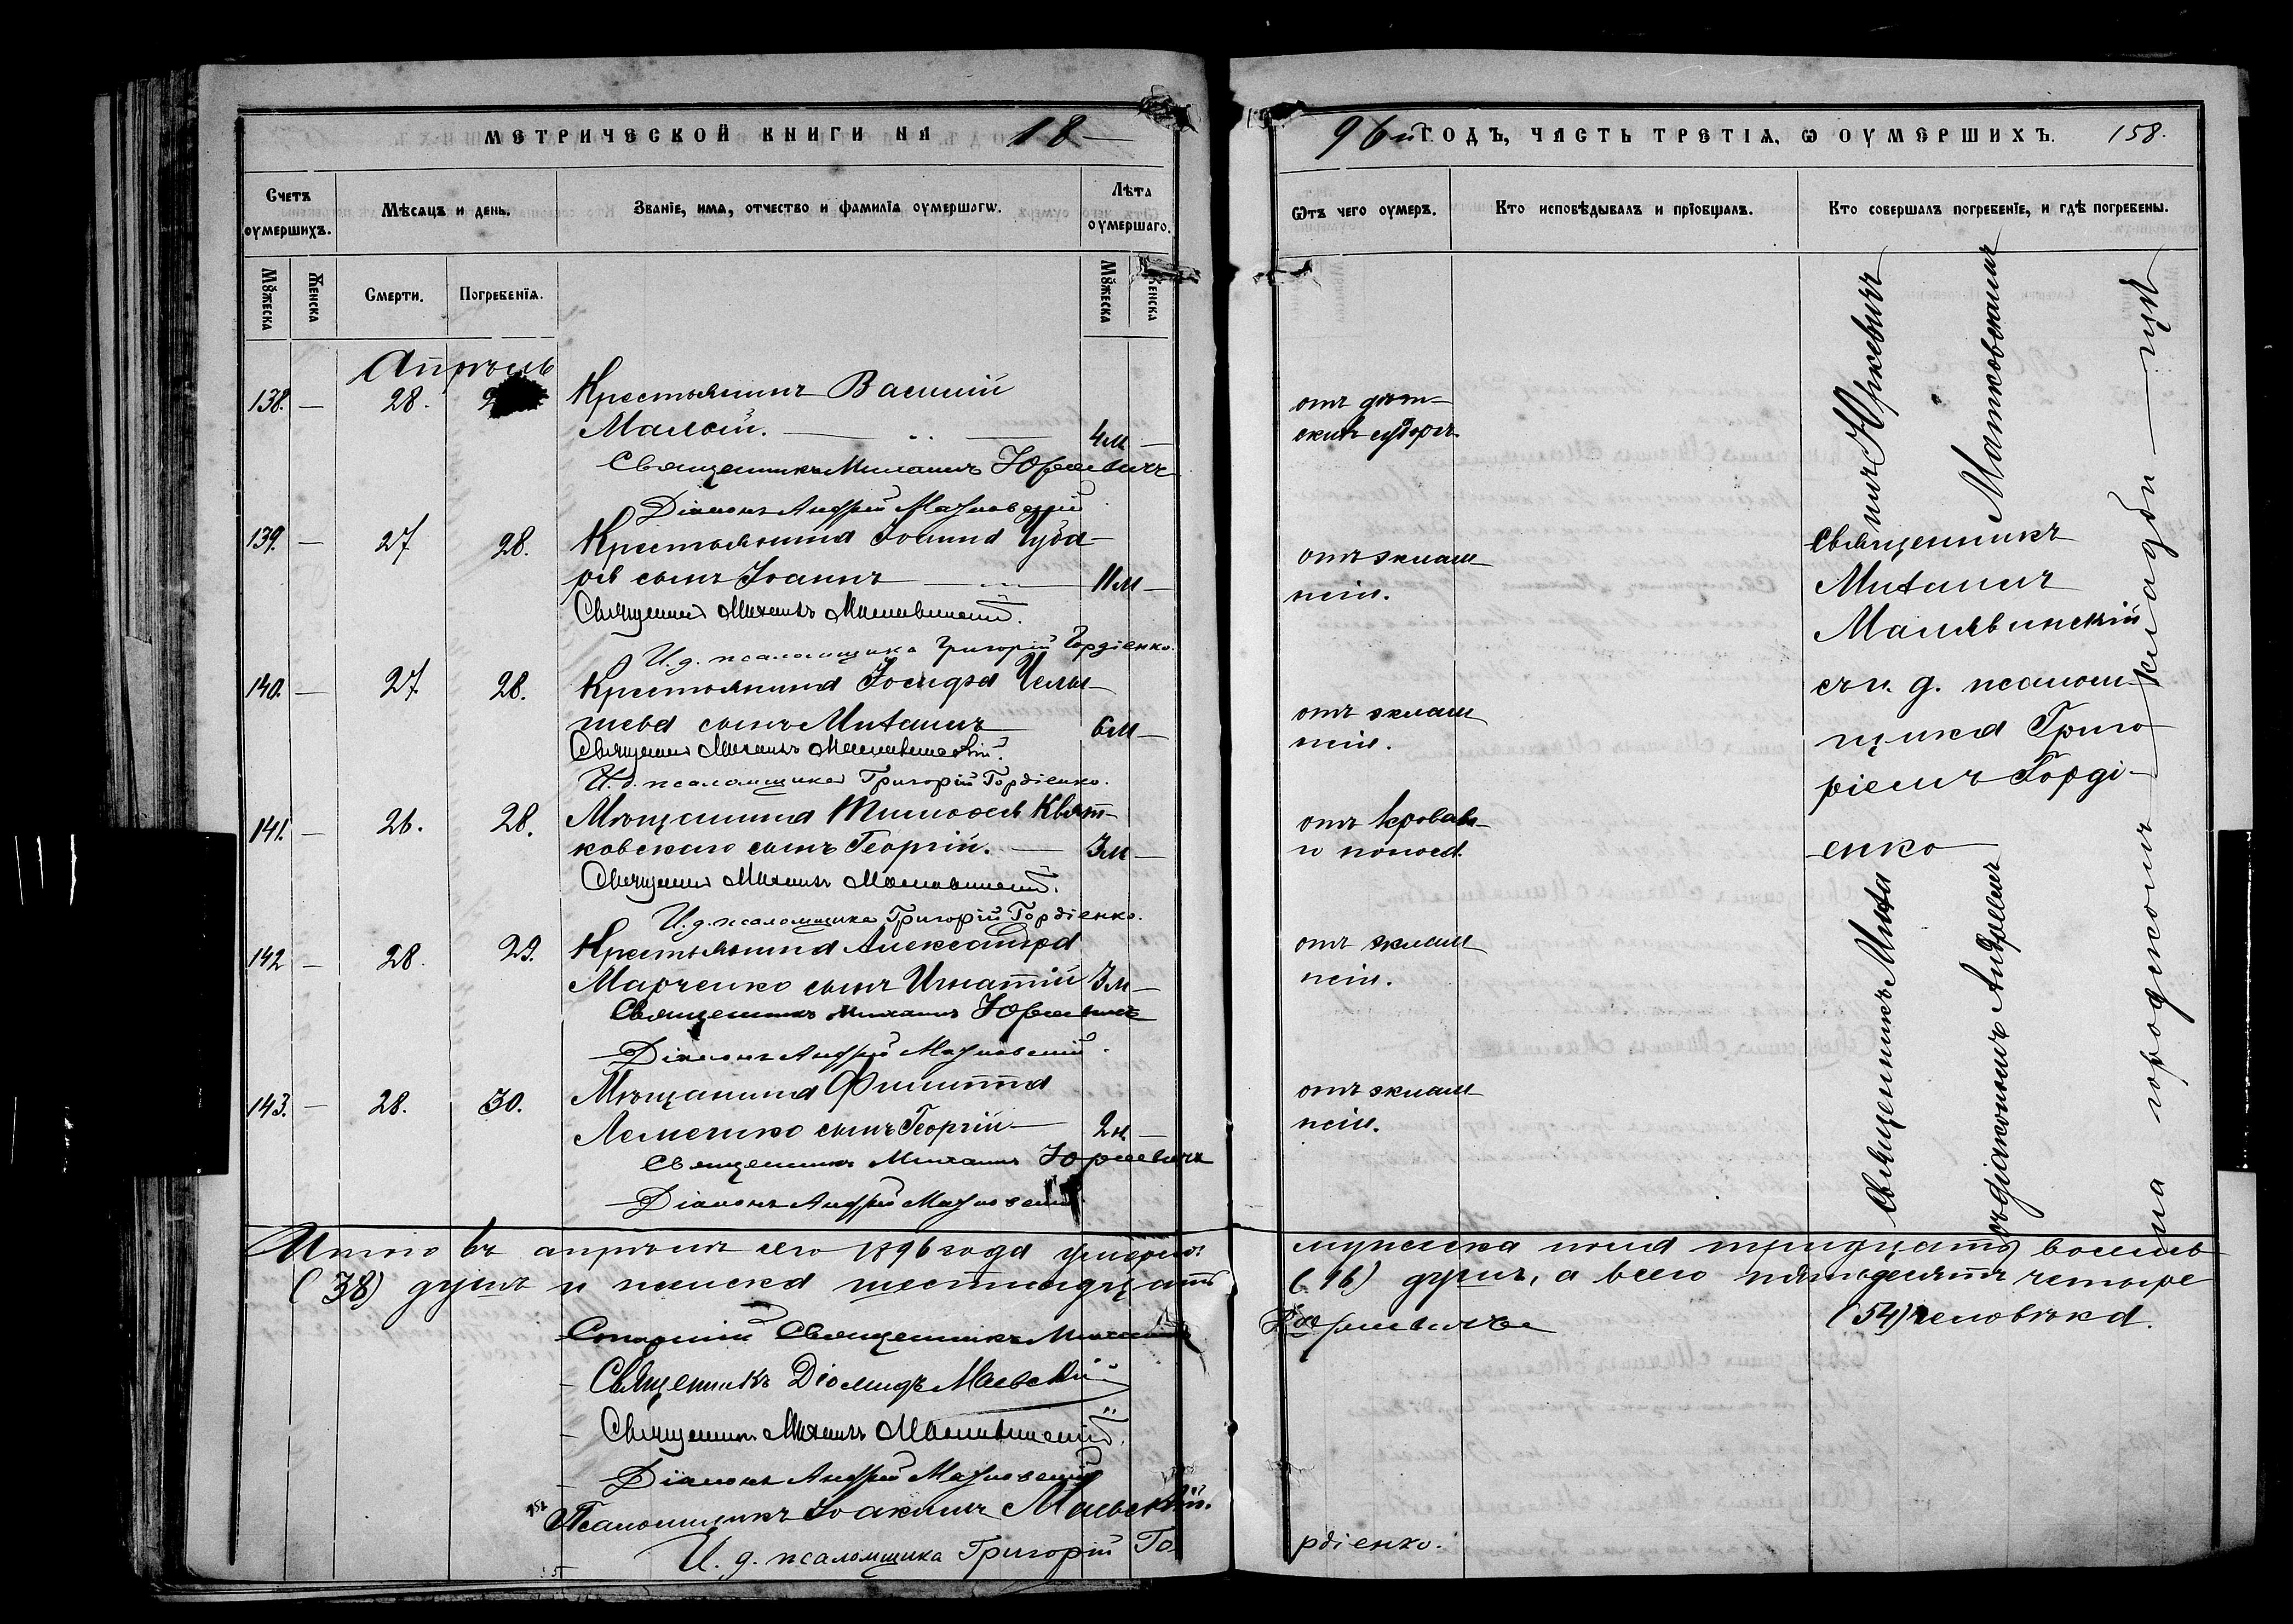 МЕТРИЧЕСКОЙ КНИГИ НА 18
Счетъ оумершихъ.
Мѣсяцъ и день.
Званіе, имя, отчество и фамилія оумершагѡ.
Лѣта оумершаго.
Мꙋжеска
Женска
Смерти.
Погребенія.
Мꙋжеска
Женска
Апрѣль
138. — 28.
Крестьянинъ Василій
Малой. — 4м —
Священникъ Михаилъ Юркевичъ
Діаконъ Андрей
139. — 27 28. Крестьянина Іоанна Губа-
ря сынъ Іоаннъ — 11м —
Священникъ Михаилъ Малявинскій.
И. д. псаломщика Григорій Гордіенко.
140. — 27 28. Крестьянина Іосифа
сынъ Михаилъ 6м —
Священникъ Михаилъ Малявинскій.
И. д. псаломщика Григорій Гордіенко.
141. — 26. 28. Мѣщанина Тимоѳея Квят-
ковскаго сынъ Георгій. — 3м —
Священникъ Михаилъ Малявинскій.
И. д. псаломщика Григорій Гордіенко.
142 — 28. 29. Крестьянина Александра
Марченко сынъ Игнатій 3м —
Священникъ Михаилъ Юркевичъ
Діаконъ Андрей
143. — 28. 30. Мѣщанина Филиппа
сынъ Георгій —
Священникъ Михаилъ Юркевичъ
Діаконъ Андрей
Итого въ апрѣлѣ сего 1896 года умерло:
(38) душъ и женска шестнадцать
Священникъ Михаилъ
Священникъ Діомидъ Маевскій
Священникъ Михаилъ Малявинскій.
Діаконъ Андрей
Псаломщикъ Іоакимъ Маевскій.
И. д. псаломщика Григорій Го
96й ГОДЪ, ЧАСТЬ ТРЕТІЯ, Ѡ ОУМЕРШИХЪ. 158.
Ѿтъ чего оумеръ.
Кто исповѣдывалъ и пріобщалъ.
Кто совершалъ погребеніе, и гдѣ погребены.
отъ дѣт-
скихъ судорг.
отъ эклам
псіи.
отъ эклам
псіи.
отъ кроваваг
о поноса.
отъ эклам
псіи.
отъ эклам
псіи.
Священникъ
Михаилъ
Малявинскій
съ и. д. псалом-
щика Григо
ріемъ Горді-
енко
Священникъ Миха
илъ Юркевичъ
съ діакономъ Андреемъ
на городскомъ кладби — щѣ
мужеска пола тридцать восемь
(16) душъ, а всего пятьдесятъ четыре
(54) человѣка.
Юркевичъ
рдіенко.